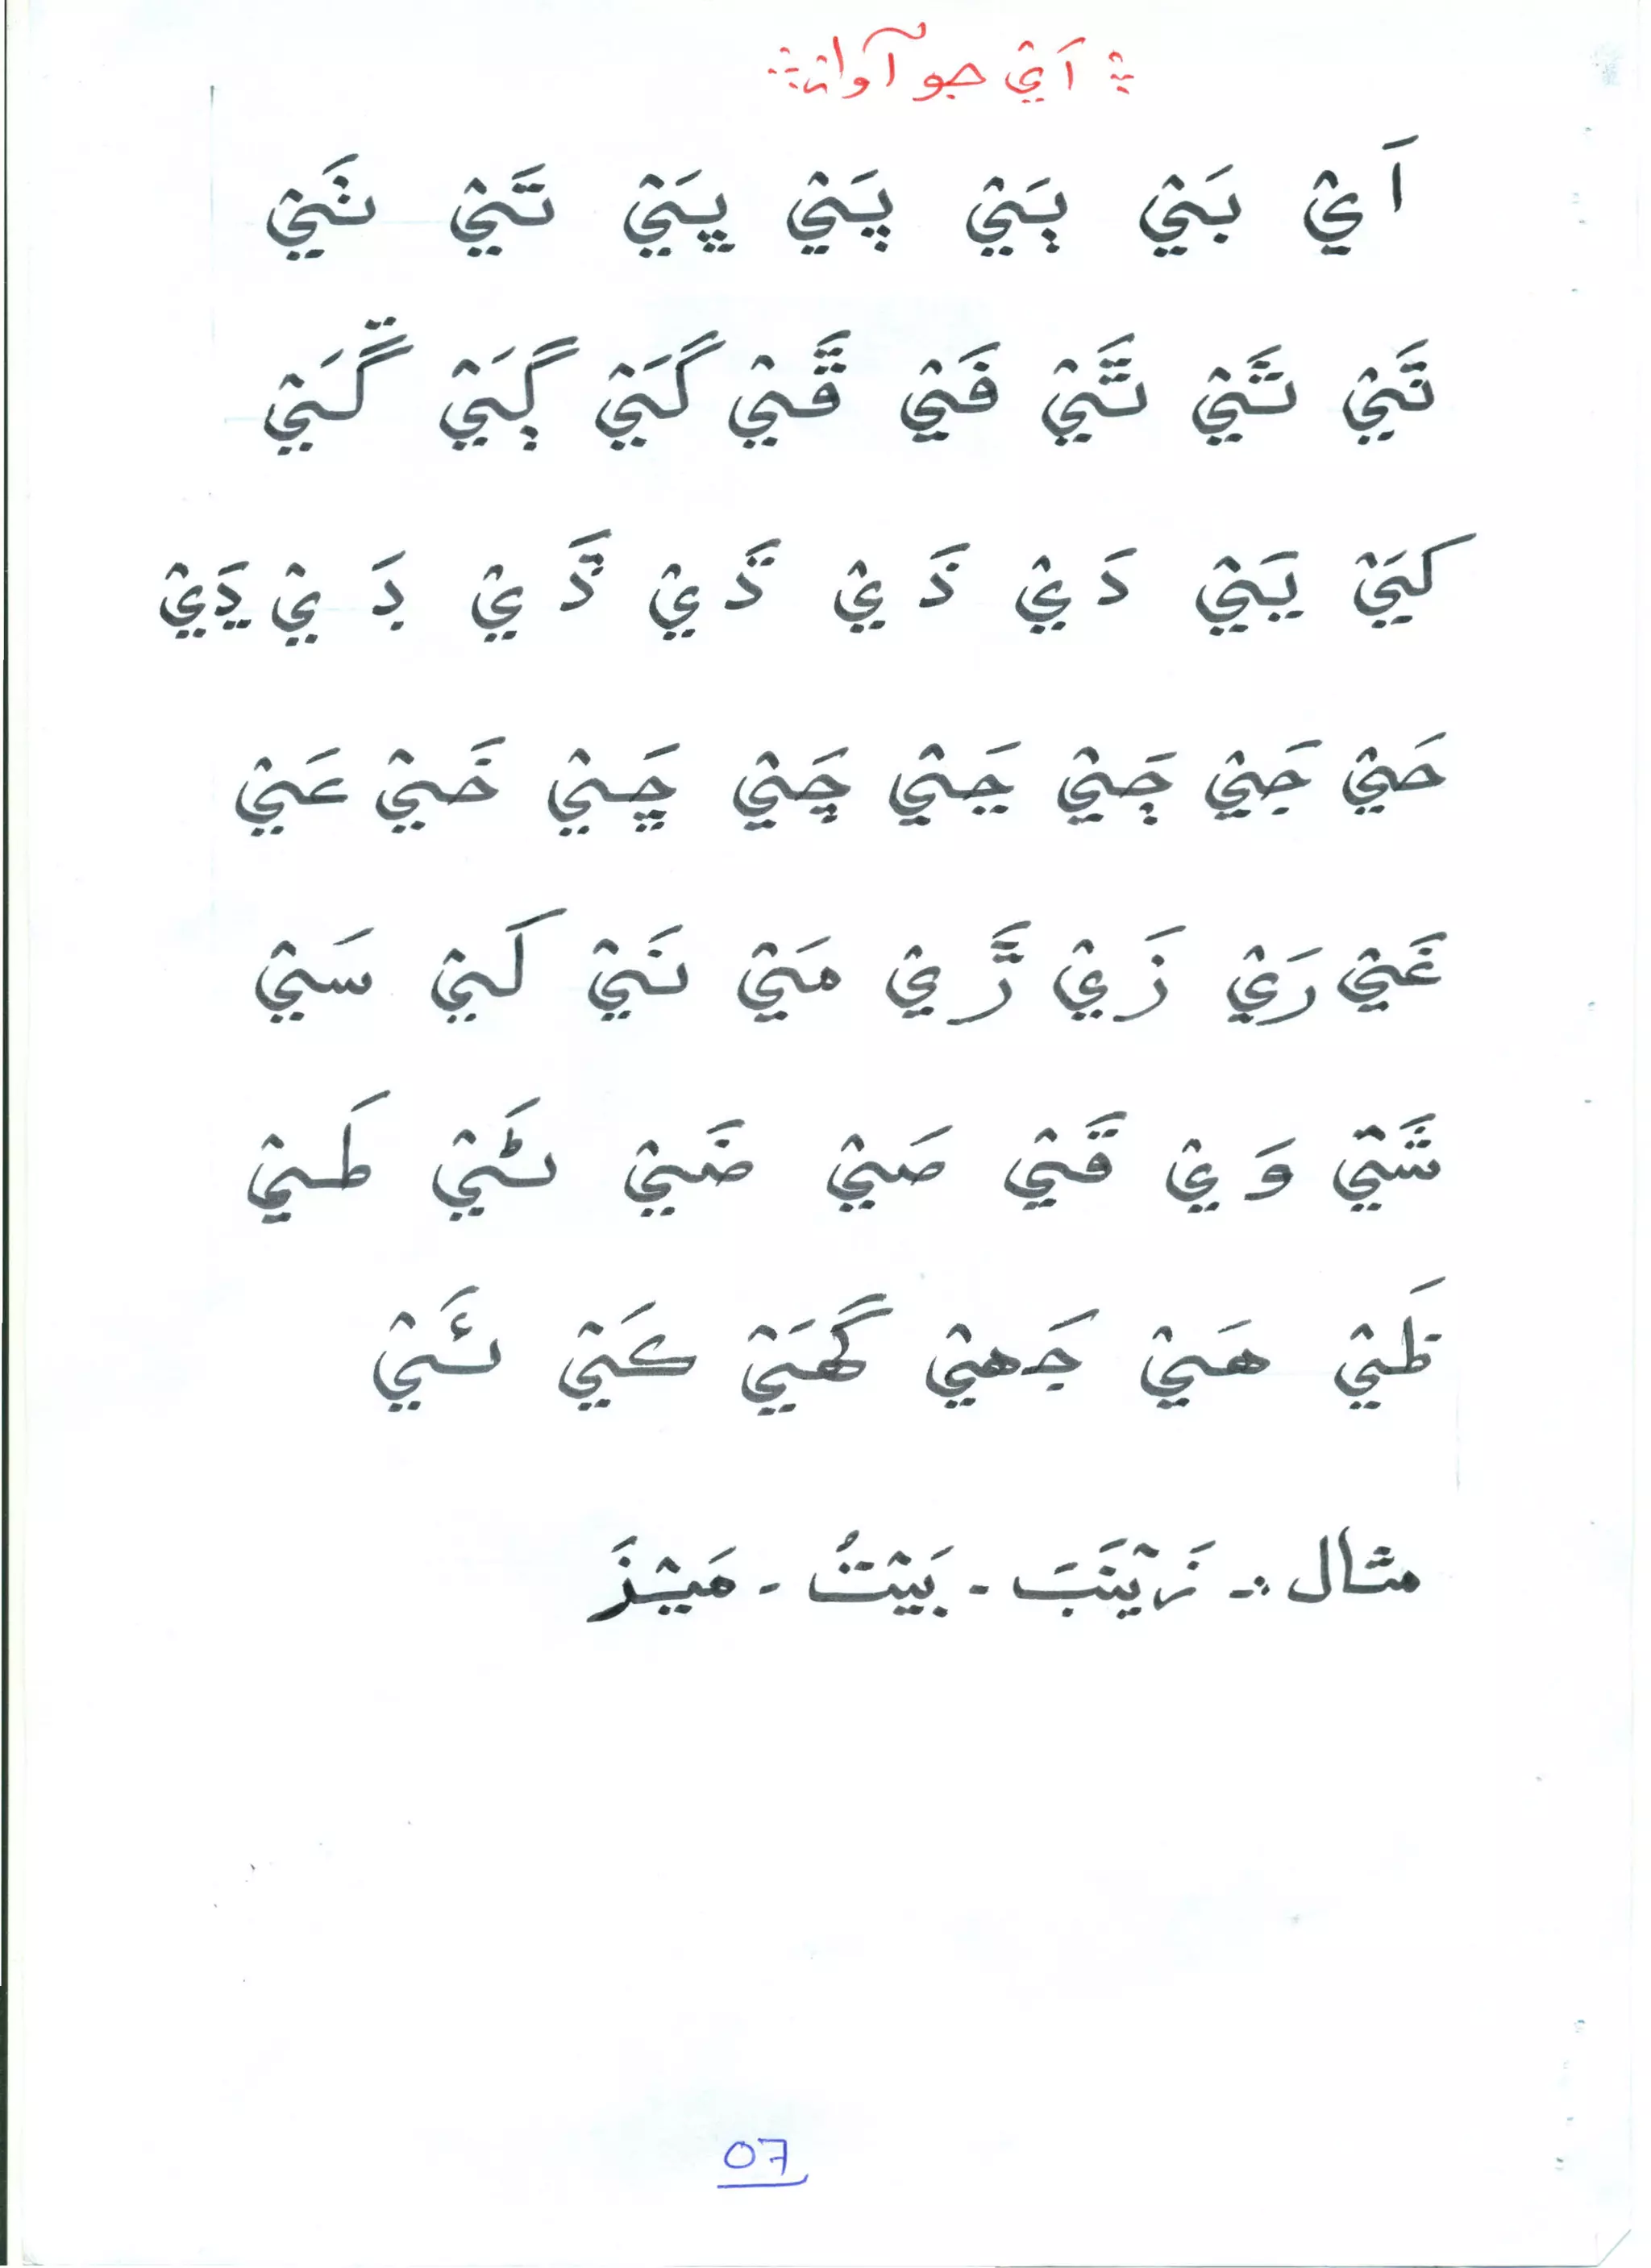 اَيْ جو آواز
اَيْ بَيْ ٻَيْ پَيْ ڀَيْ تَيْ ٺَيْ
ٽَيْ ثَيْ ٿَيْ فَيْ ڦَيْ گَيْ ڳَيْ ڱَيْ
کَيْ يَيْ دَيْ ذَيْ ڏَيْ ڌَيْ ڊَيْ ڍَيْ
حَيْ جَيْ ڄَيْ ڃَيْ چَيْ ڇَيْ خَيْ عَيْ
غَيْ رَيْ زَيْ ڙَيْ مَيْ نَيْ لَيْ سَيْ
شَيْ وَيْ قَيْ صَيْ ضَيْ ڻَيْ طَيْ
ظَيْ هَيْ جَهيْ گهَيْ ڪَيْ ئَيْ
مثال :- زَيْنَبَ - بَيْتُ - مَيْزَ
07